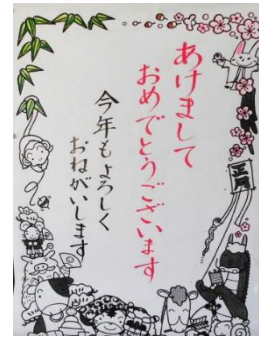 あけまして
おめでとうございます
今年もよろしく
おねがいします